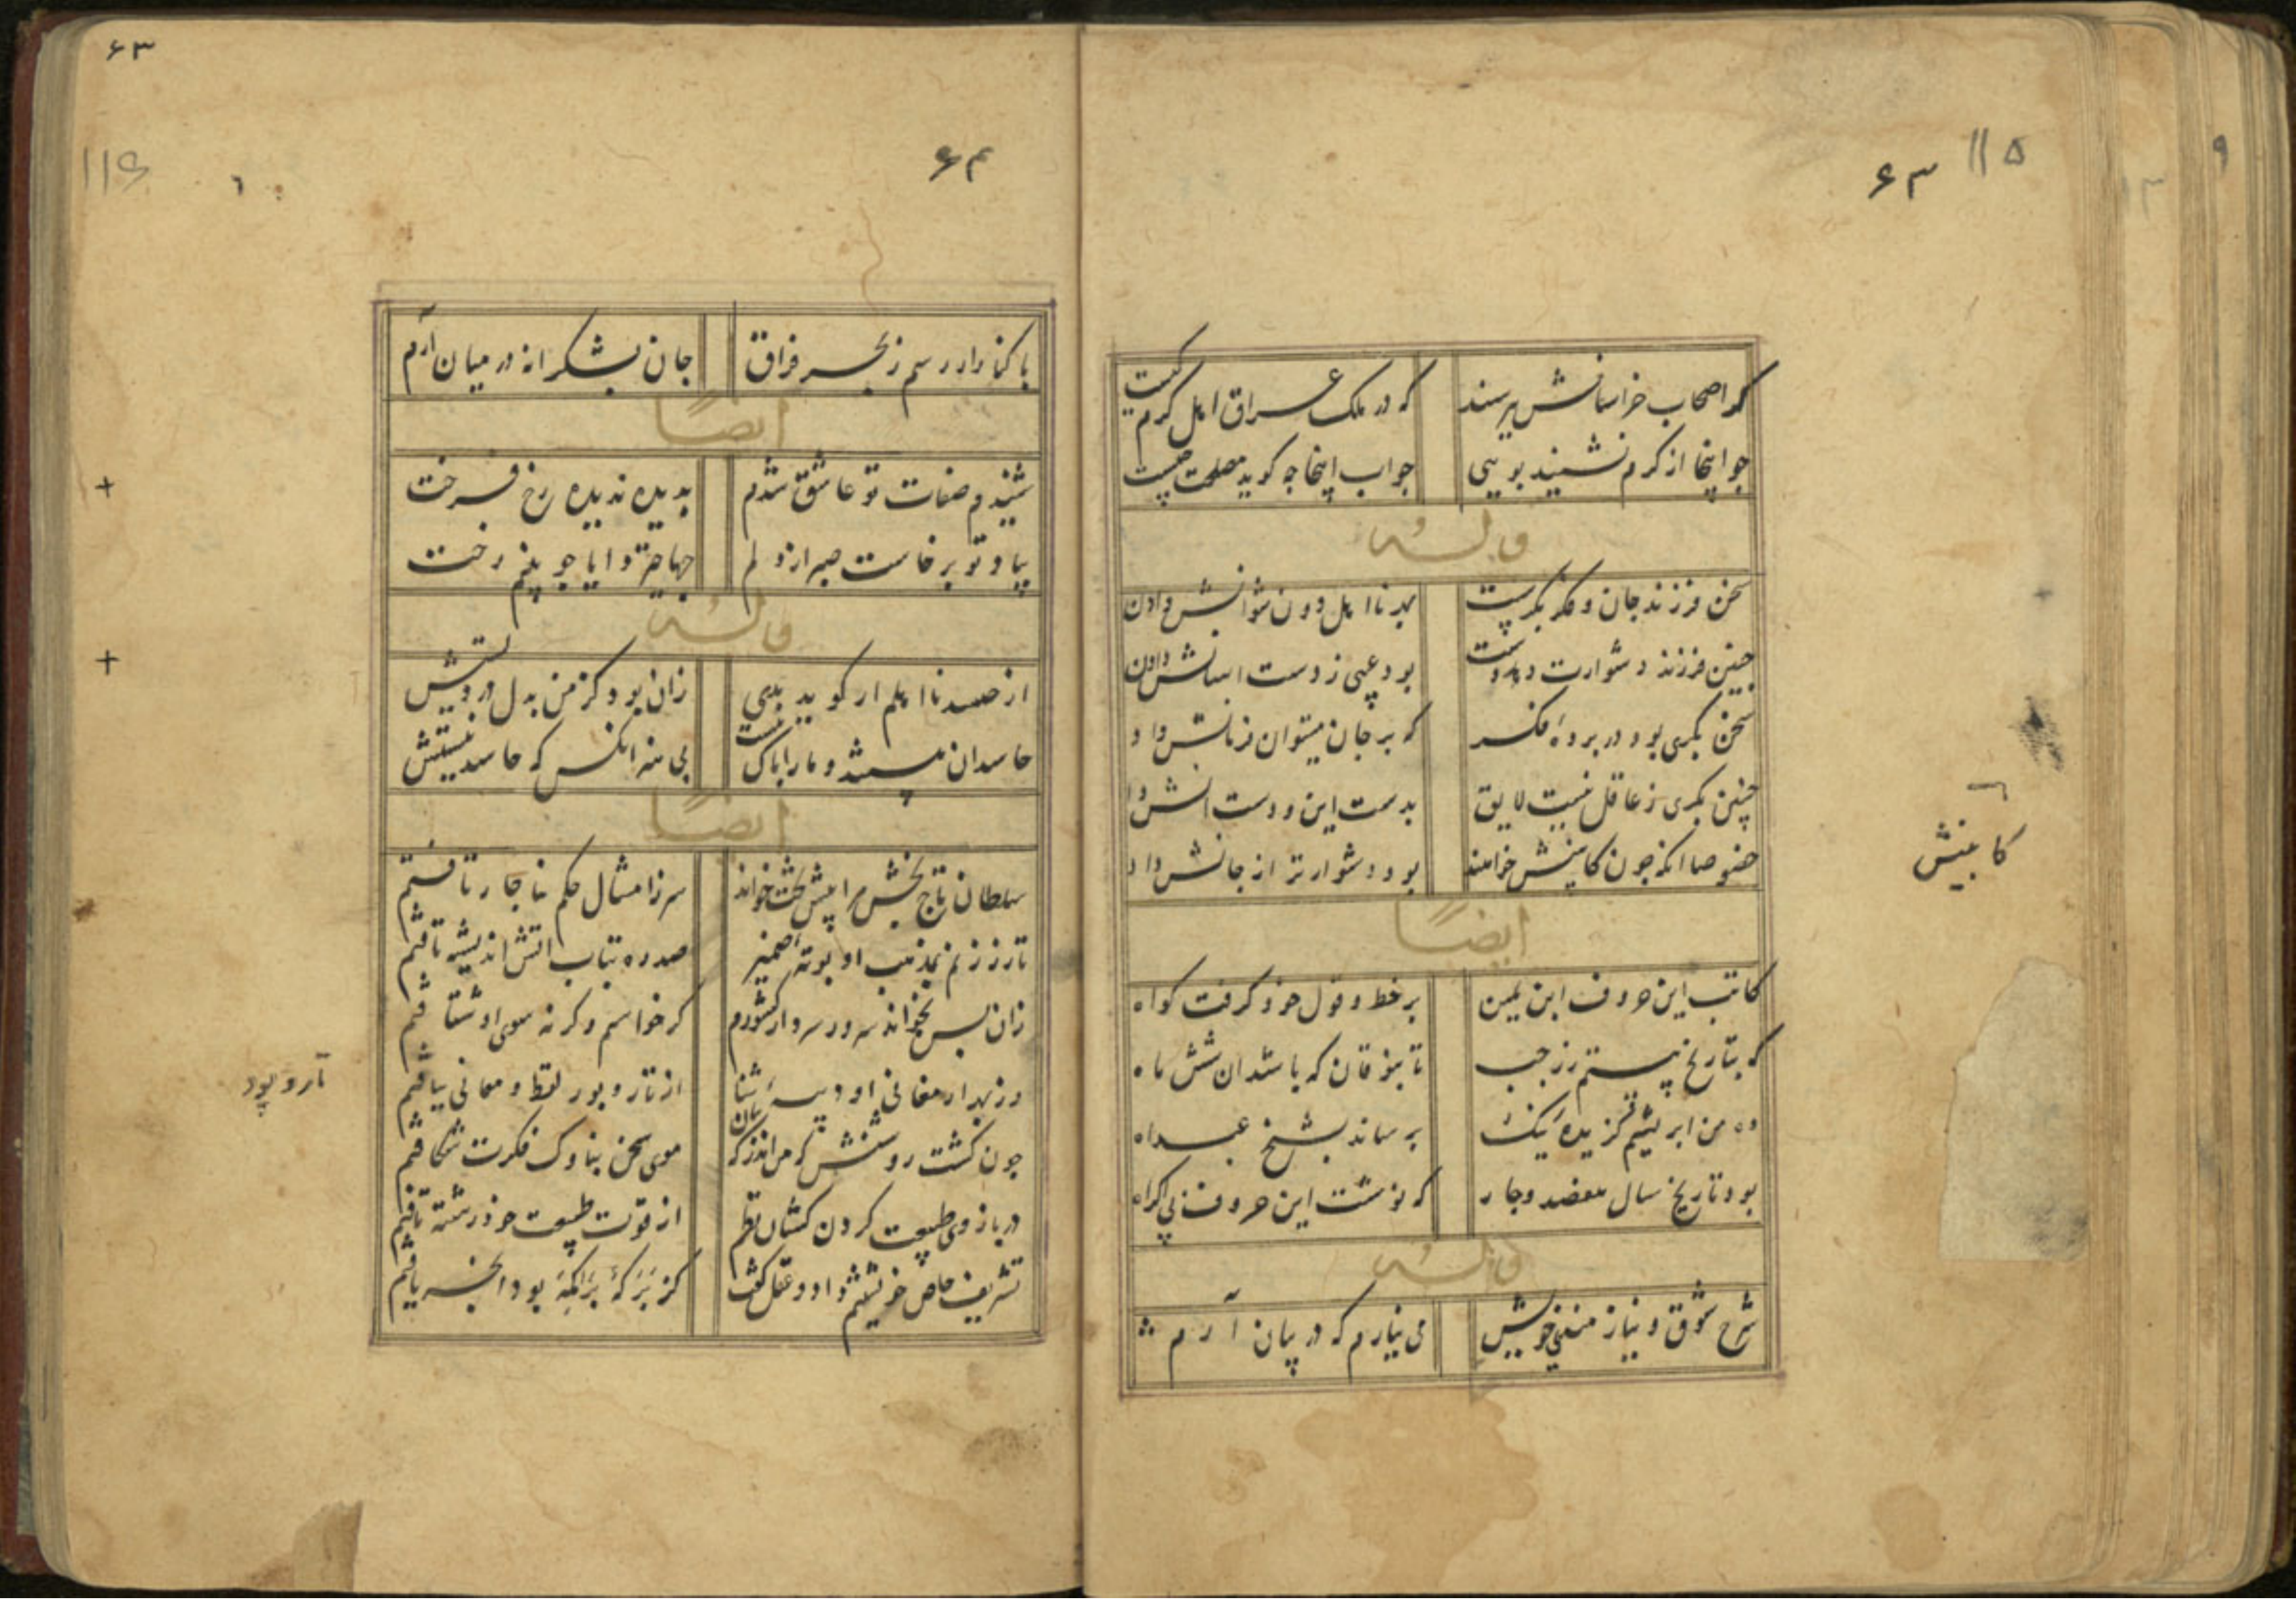 ۶۳
۱۱۵
۹
گر اصحاب خراسانش بپرسند
که در ملک عراق اهل کرم کیست
چو اینجا از کرم نشنید بویی
جواب اینجا چه گوید مصلحت چیست
و له
سخن فرزند جان و فکر بکرست
بهر نا اهل دون نتوانش دادن
چنین فرزند دشوارت دهد دست
بود عیبی ز دست آسانش دادن
سخن بکری بود در پرده فکر
که بر جان میتوان فرمانش داد
چنین بکری ز عاقل نیست لایق
بدست این و دست آنش داد
خصوصا آنکه چون کابینش خواهند
بود دشوارتر از جانش داد
کابینش
ایضاً
کاتب این حروف ابن یمین
بر خط و قول خود گرفت گواه
که بتاریخ بیستم ز رجب
تا بذوقان که باشد آن شش ماه
ده من ابریشم گزیده نیک
برساند بشیخ عبداه
بود تاریخ سال هفصد و چار
که نوشت این حروف بی اکراه
و له
شرح شوق و نیازمندی خویش
می نیارم که در بیان آرم
۶۳
۶۴
۱۱۶
با کنار ار رسم ز بحر فراق
جان بشکرانه در میان آرم
ایضاً
شنیدم صفات تو عاشق شدم
بدیده ندیده رخ فرخت
بیاد تو برخاست صبر از دلم
و له
از حسد نا اهلم ار گوید بدی
زان بود کز من بدل در ویستش
حاسدان هستند و ما را باک نیست
بی هنر آنکس که حاسد نیستش
ایضاً
سلطان تاج بخش مرا پیش تخت خواند
سر زامتثال حکم بناچار تافتم
تا زر زنم بمذهب او بوته ضمیر
صد ره بتاب آتش اندیشه تافتم
زان پس بخواند سرور سردار کشورم
گر خواستم وگر نه سوی او شتافتم
وز بهر ارمغانی او دیبه ثنا
از تار و پود لفظ و معانی بیافتم
تار و پود
چون گشت روشنش که من اندر گه بیان
موی سخن بناوک فکرت شکافتم
در بازوی طبیعت گردن کشان نظم
از قوت طبیعت خود رشته تافتم
تشریف خاص خویشتنم داد و عقل گفت
کز برکه برامکه بود آنچه یافتم